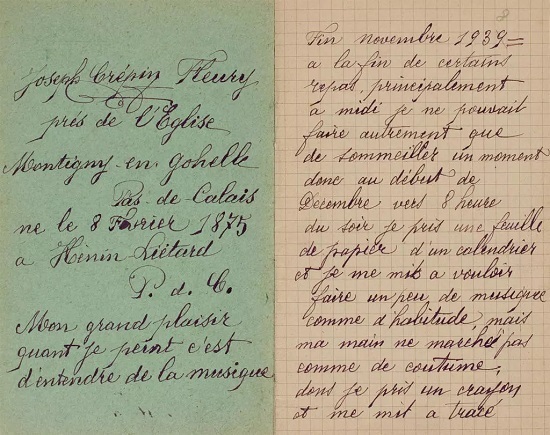 Joseph Crépin Fleury
près de l'Eglise
Montigny-en-Gohelle
Pas-de-Calais
ne le 8 Février 1875
a Hénin Liétard
P. d. C.
Mon grand plaisir
quant je peint c'est
d'entendre de la musique
Fin novembre 1939 =
a la fin de certains
repas, principalement
à midi je ne pouvait
faire autrement que
de sommeiller un moment
donc au début de
Décembre vers 8 heure
du soir je pris une feuille
de papier d'un calendrier
et je me mit a vouloir
faire un peu de musique
comme d'habitude, mais
ma main ne marché pas
comme de coutume,
dons je pris un crayon
et me mit a tracé